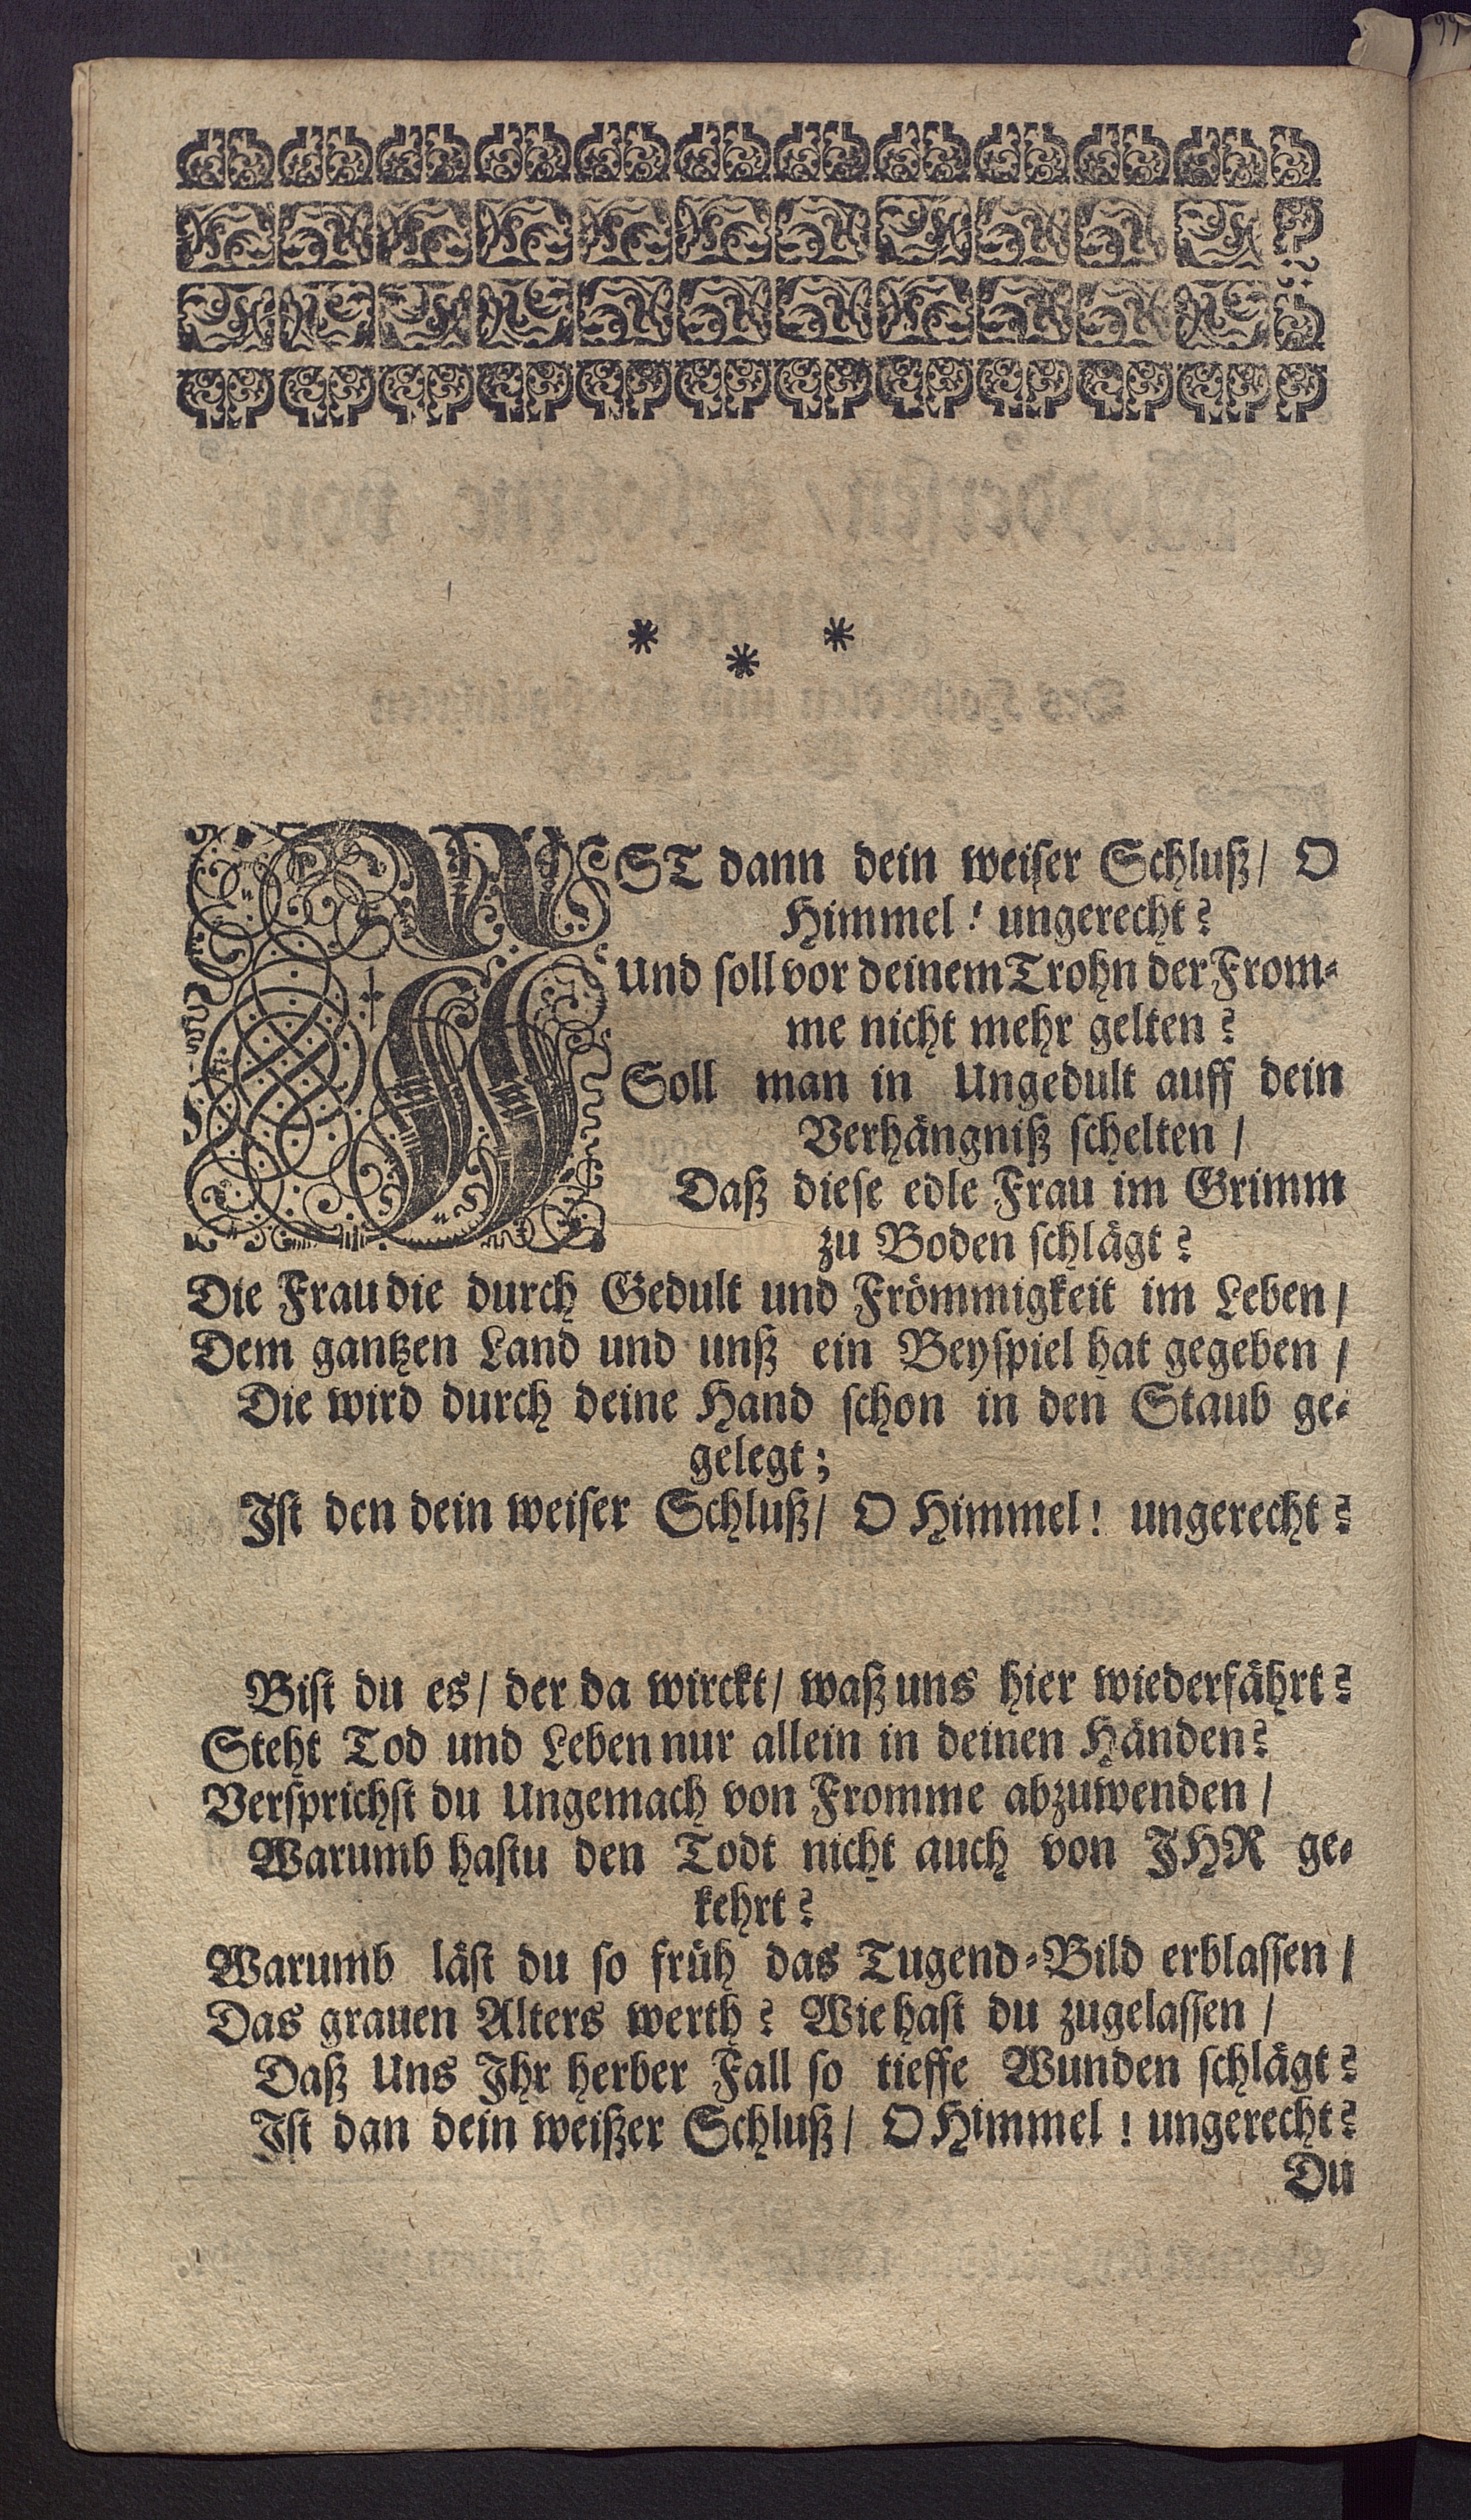 * * *
IST dann dein weiser Schluß/ O
Himmel! ungerecht?
Und soll vor deinem Trohn der From-
me nicht mehr gelten?
Soll man in Ungedult auff dein
Verhängniß schelten /
Daß diese edle Frau im Grimm
zu Boden schlägt?
Die Frau die durch Gedult und Frömmigkeit im Leben /
Dem gantzen Land und unß ein Beyspiel hat gegeben /
Die wird durch deine Hand schon in den Staub ge-
gelegt;
Ist den dein weiser Schluß/ O Himmel! ungerecht?
Bist du es/ der da wirckt/ waß uns hier wiederfährt?
Steht Tod und Leben nur allein in deinen Händen?
Versprichst du Ungemach von Fromme abzuwenden /
Warumb hastu den Todt nicht auch von IHR ge-
kehrt?
Warumb läst du so früh das Tugend-Bild erblassen /
Das grauen Alters werth? Wie hast du zugelassen /
Daß Uns Ihr herber Fall so tieffe Wunden schlägt?
Ist dan dein weißer Schluß/ O Himmel! ungerecht?
Du